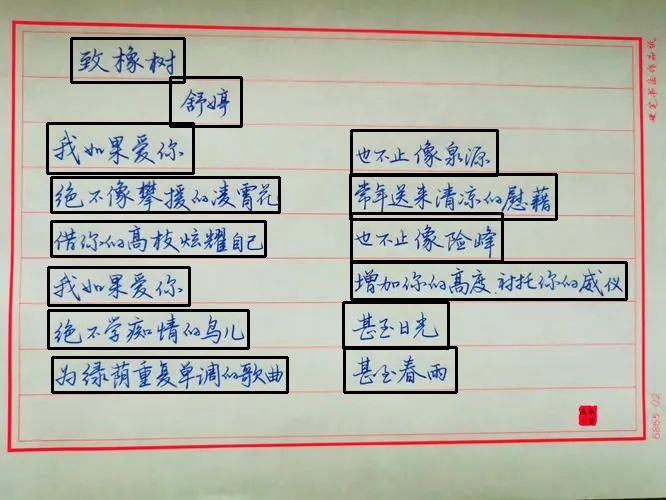 致橡树
舒婷
我如果爱你
绝不像攀援的凌霄花
借你的高枝炫耀自己
我如果爱你
绝不学痴情的鸟儿
为绿荫重复单调的歌曲
也不止像泉源
常年送来清凉的慰藉
也不止像险峰
增加你的高度,衬托你的威仪
甚至日光
甚至春雨
硬笔书法作品纸
6865-02